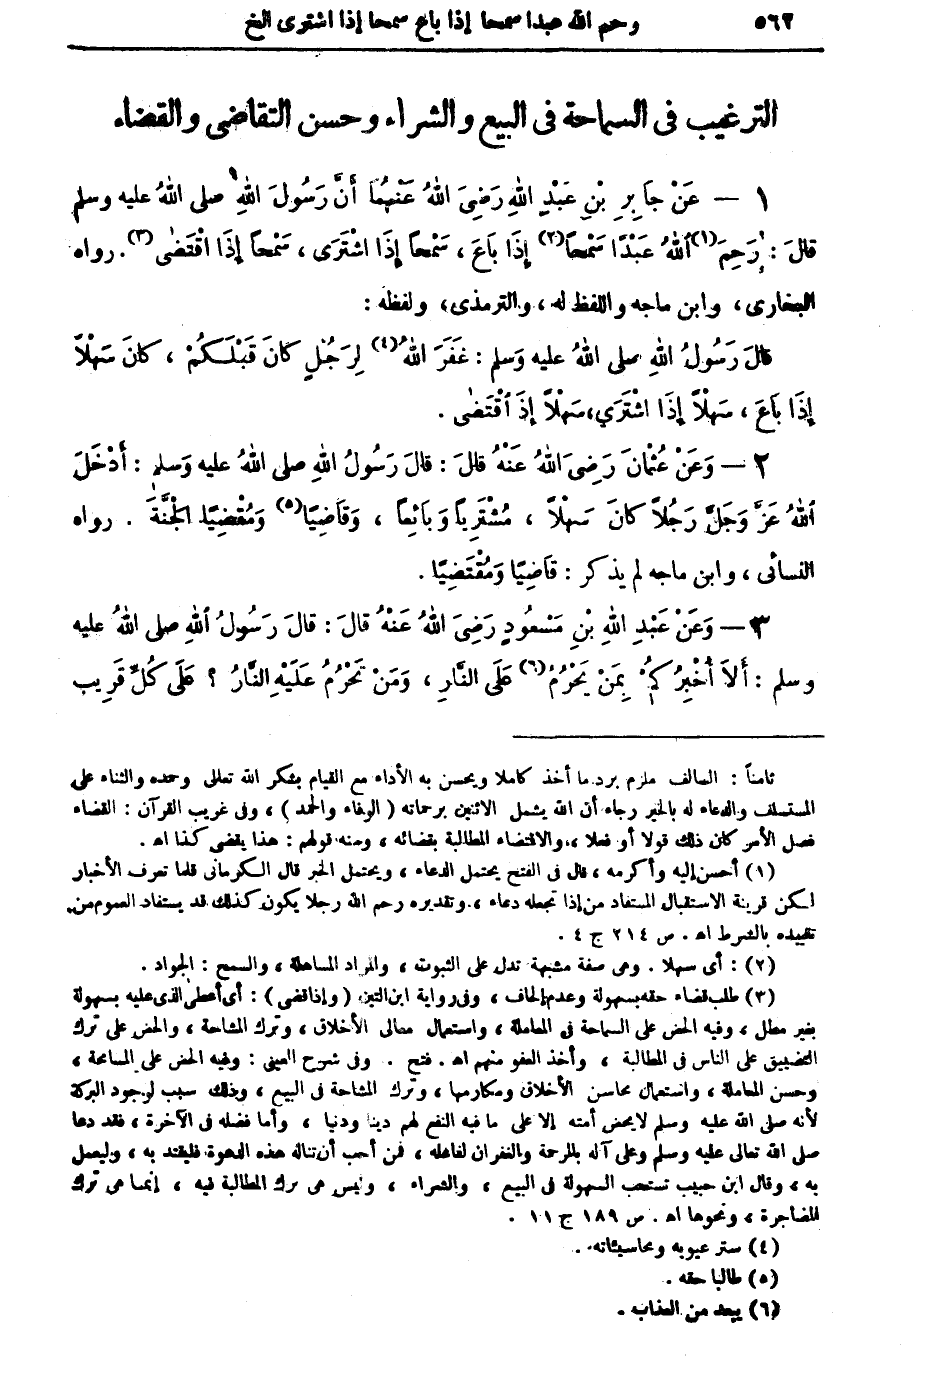 ٥٦٢ رحم الله عبدا سمحا إذا باع سمحا إذا اشترى الخ
الترغيب فى السماحة فى البيع والشراء وحسن التقاضى والقضاء
١ — عَنْ جَابِرِ بْنِ عَبْدِ اللهِ رَضِىَ اللهُ عَنْهُمَا أَنَّ رَسُولَ اللهِ صلى اللهُ عليه وسلم
قالَ : رَحِمَ(١) اللهُ عَبْدًا سَمْحاً(٢) إِذَا بَاعَ ، سَمْحاً إِذَا اشْتَرَى ، سَمْحاً إِذَا اقْتَضَى(٣) . رواه
البخارى ، وابن ماجه واللفظ له ، والترمذى ، ولفظه :
قالَ رَسُولُ اللهِ صلى اللهُ عليه وَسلم : غَفَرَ اللهُ(٤) لِرَجُلٍ كانَ قَبْلَكُمْ ، كانَ سَهْلاً
إِذَا بَاعَ ، سَهْلاً إِذَا اشْتَرَي ، سَهْلاً إِذَ اقْتَضَى .
٢ — وَعَنْ عُثْمَانَ رَضِىَ اللهُ عَنْهُ قالَ : قالَ رَسُولُ اللهِ صلى اللهُ عليه وَسلم : أَدْخَلَ
اللهُ عَزَّ وَجَلَّ رَجُلاً كانَ سَهْلاً ، مُشْتَرِياً وَبَائِعاً ، وَقَاضِيًا(٥) وَمُقْضِيًا الْجَنَّةَ . رواه
النسائى ، وابن ماجه لم يذكر : قاضِيًا وَمُقْتَضِيًا .
٣ — وَعَنْ عَبْدِ اللهِ بْنِ مَسْعُودٍ رَضِىَ اللهُ عَنْهُ قالَ : قالَ رَسُولُ اللهِ صلى اللهُ عليه
وسلم : أَلاَ أُخْبِرُكُمْ بِمَنْ يَحْرُمُ(٦) عَلَى النَّارِ ، وَمَنْ تَحْرُمُ عَلَيْهِ النَّارُ ؟ عَلَى كُلِّ قَرِيب
ثامناً : السالف ملزم برد ما أخذ كاملا ويحسن به الأداء مع القيام بشكر الله تعالى وحمده والثناء على
المستسلف والدعاء له بالخير رجاء أن الله يشمل الاثنين برحماته ( الوفاء والحمد ) ، وفى غريب القرآن : القضاء
فصل الأمر كان ذلك قولا أو فعلا ، والاقتضاء المطالبة بقضائه ، ومنه قولهم : هذا يقضى كذا اه .
(١) أحسن إليه وأكرمه ، قال فى الفتح يحتمل الدعاء ، ويحتمل الخبر قال الكرمانى قلما تعرف الأخبار
لكن قرينة الاستقبال المستفاد من إذا تجعله دعاء ، وتقديره رحم الله رجلا يكون كذلك قد يستفاد العموم من
تقييده بالشرط اه . ص ٢١٤ ج ٤ .
(٢) : أى سهلا . وهى صفة مشبهة تدل على الثبوت ، والمراد المساهلة ، والسمح : الجواد .
(٣) طلب قضاء حقه بسهولة وعدم إلحاف ، وفى رواية ابن التين ( وإذا قضى ) : أى أعطى الذى عليه بسهولة
بغير مطل ، وفيه الحض على السماحة فى المعاملة ، واستعمال معالى الأخلاق ، وترك المشاحة ، والحض على ترك
التضييق على الناس فى المطالبة ، وأخذ العفو منهم اه . فتح . وفى شرح العينى : وفيه الحض على المسامحة ،
وحسن المعاملة ، واستعمال محاسن الأخلاق ومكارمها ، وترك المشاحة فى البيع ، وذلك سبب لوجود البركة
لأنه صلى الله عليه وسلم لا يحض أمته إلا على ما فيه النفع لهم دينا ودنيا ، وأما فضله فى الآخرة ، فقد دعا
صلى الله تعالى عليه وسلم وعلى آله بالرحمة والغفران لفاعله ، فمن أحب أن تناله هذه الدعوة فليقتد به ، وليعمل
به ، وقال ابن حبيب تستحب السهولة فى البيع ، والشراء ، وليس هى ترك المطالبة فيه ، إنما هى ترك
المضاجرة ، ونحوها اه . ص ١٨٩ ج ١١ .
(٤) ستر عيوبه ومحا سيئاته .
(٥) طالبا حقه .
(٦) يبعد من العذاب .